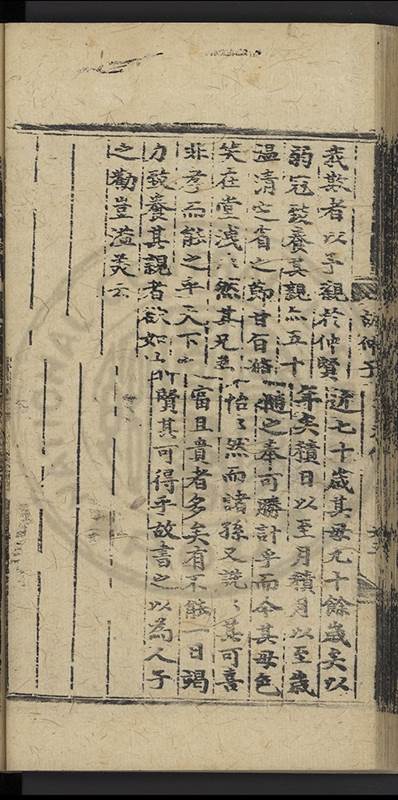 我欺者以予觀於仲賢近七十歲其母九十餘歲矣以
弱冠致養其親亦五十年矣積日以至月積月以至歲
溫凊定省之節甘旨之奉可勝計乎而今其母色
笑在堂洩〻然其兄弟怡〻然而諸孫又詵〻其可喜
非孝而能之乎天下富且貴者多矣有不能一日竭
力致養其親者欲如賢其可得乎故書之以為人子
之勸豈溢美云